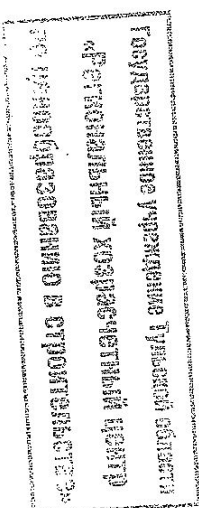 Государственное учреждение Тульской области
«Региональный хозрасчетный центр
по ценообразованию в строительстве»